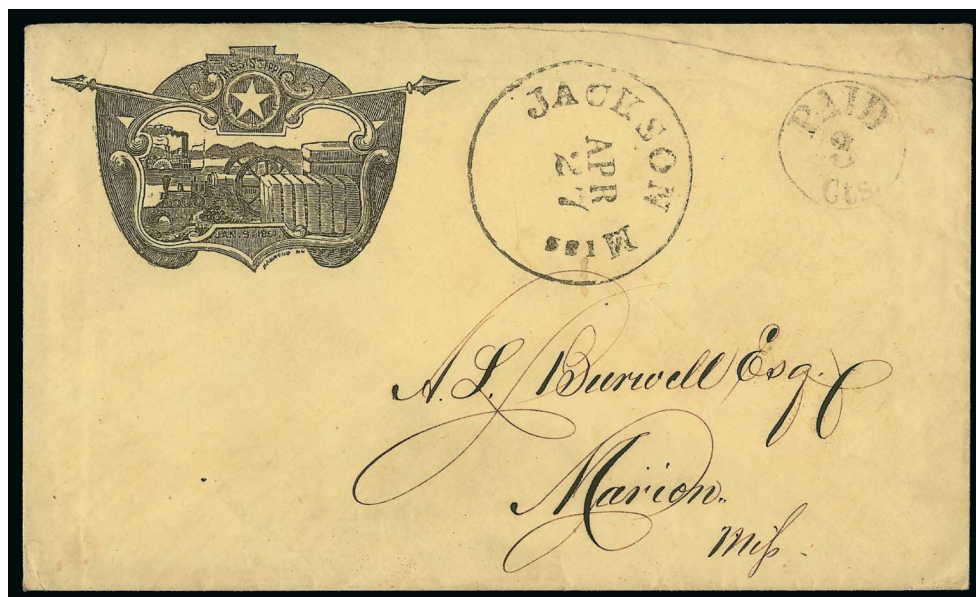 MISSISSIPPI
JAN. 9. 1861.
JACKSON
APR
27
Miss
PAID
3
Cts.
A. L. Burwell Esq.
Marion.
Miss.